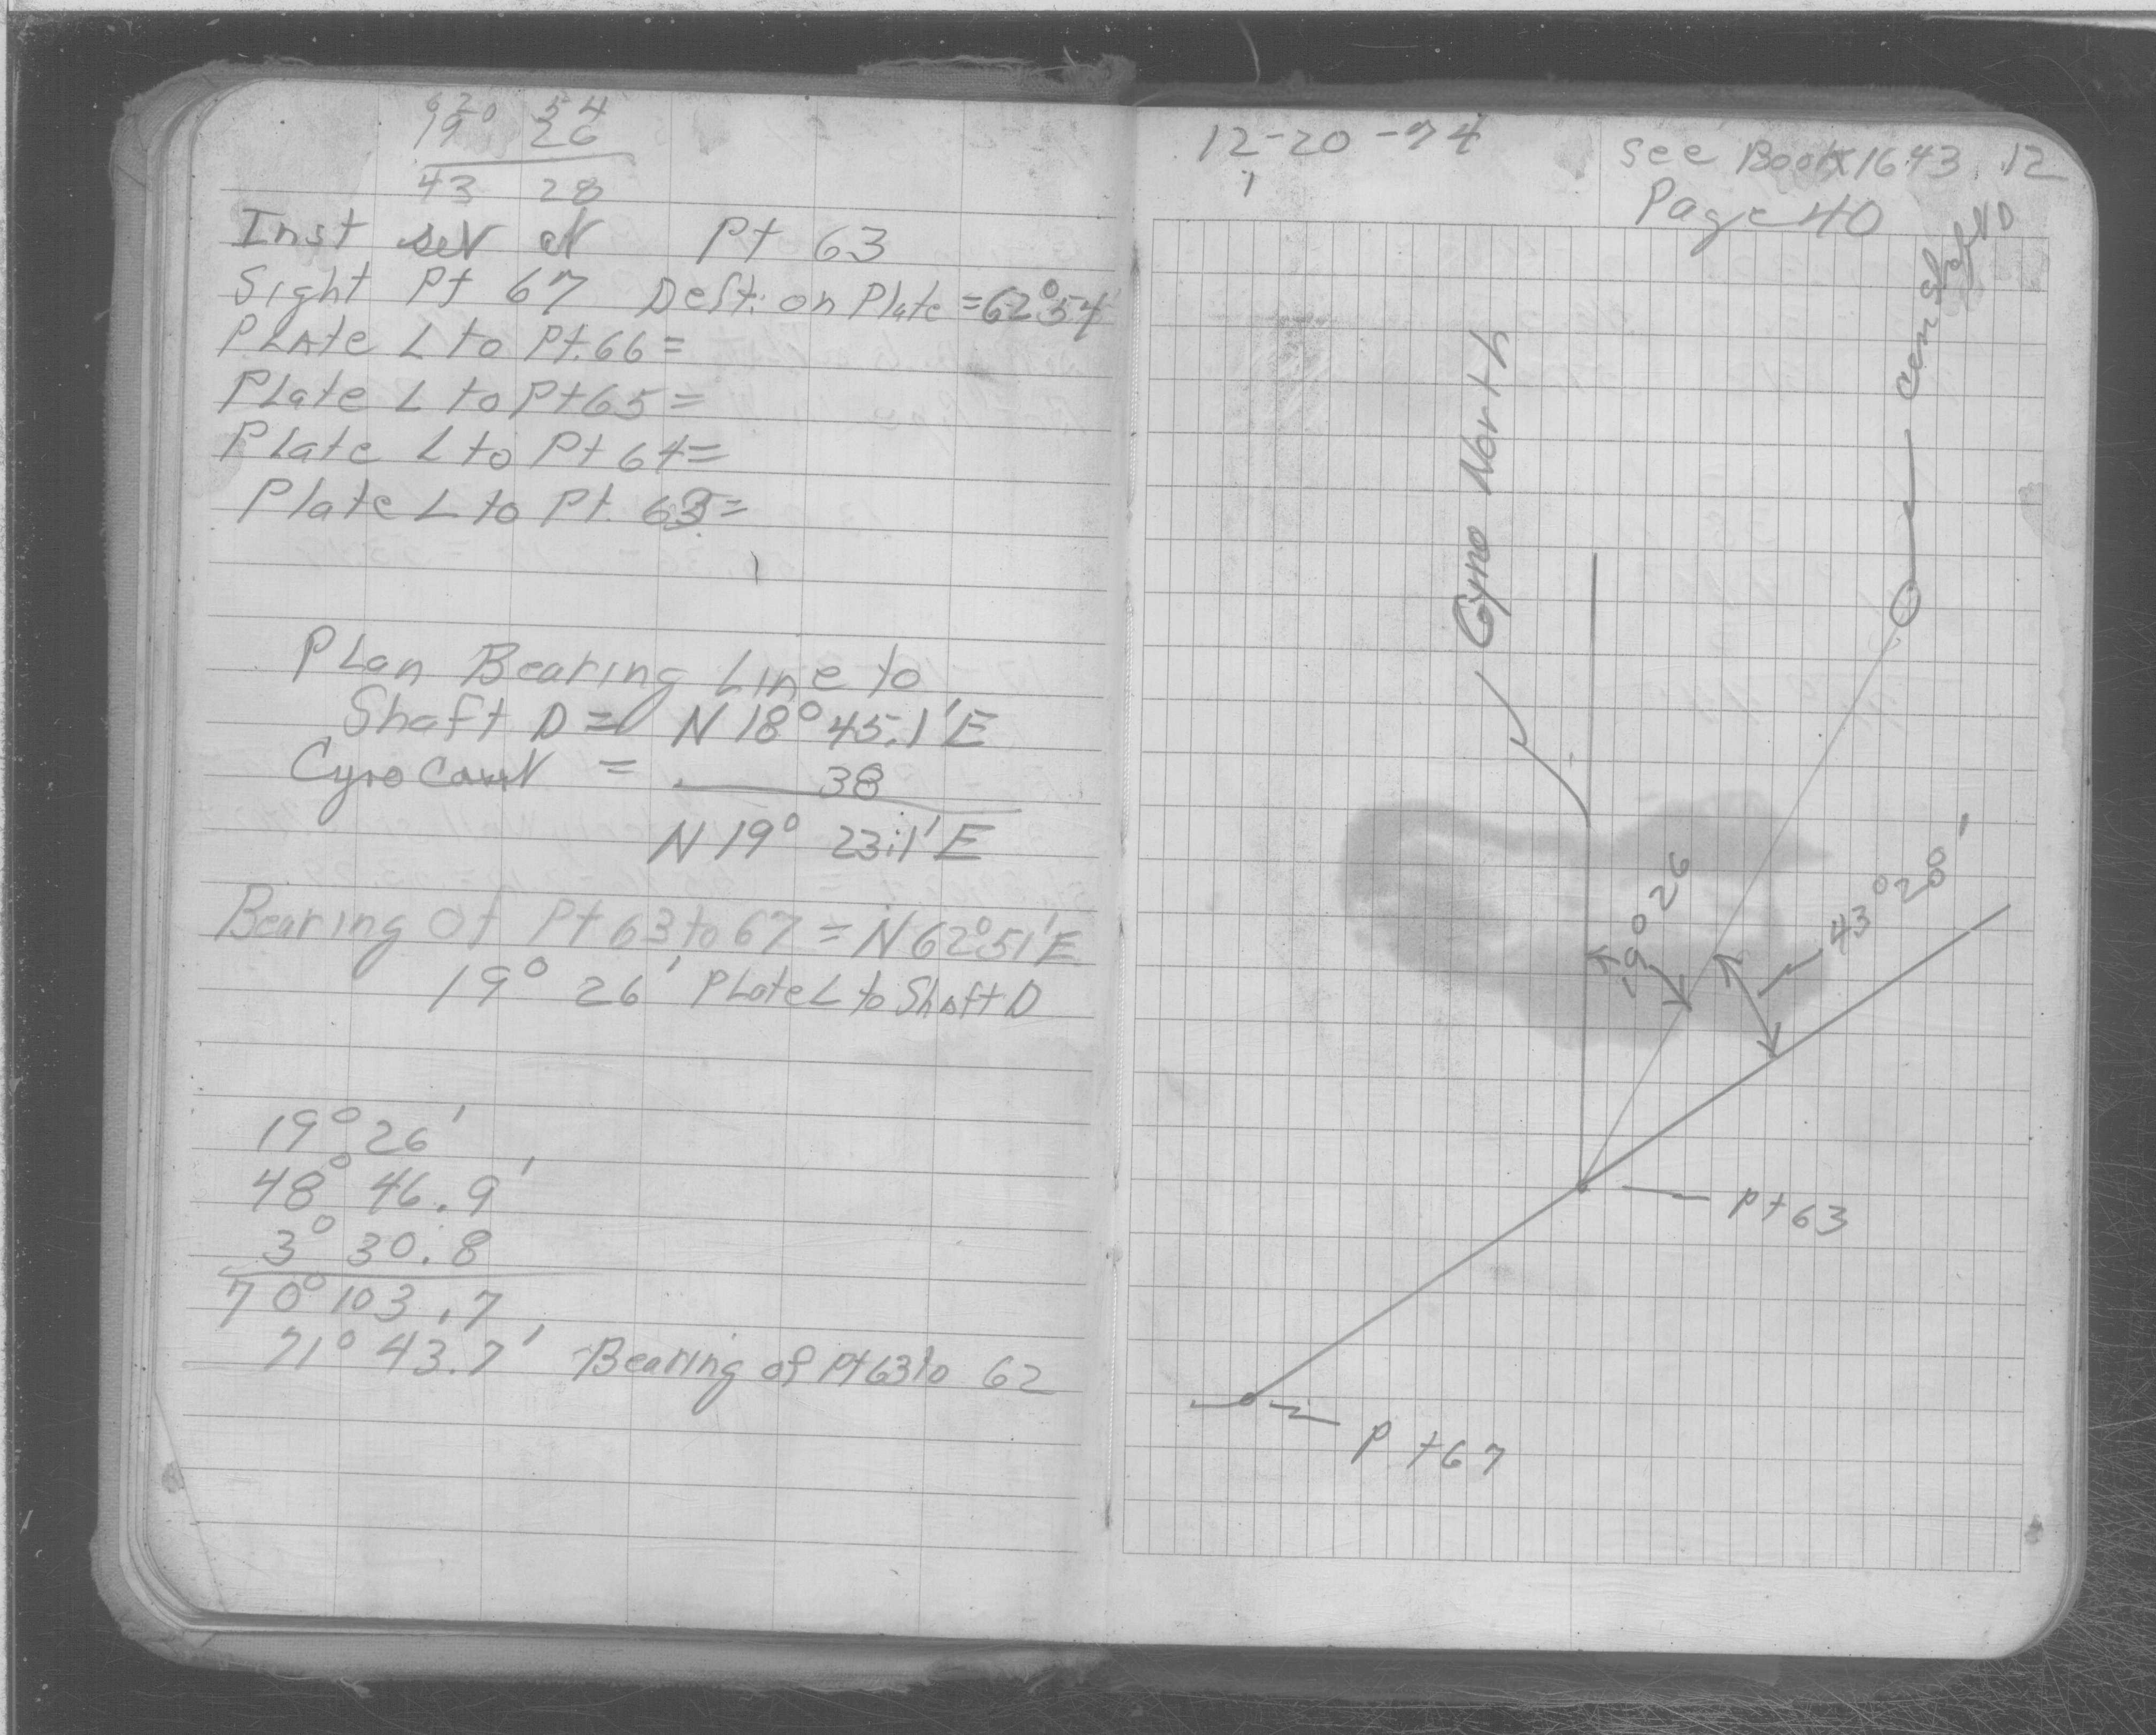 62° 54
19° 26
43 28
Inst set at Pt 63
Sight Pt 67 Deft. on Plate = 62° 54'
PLAte L to Pt. 66 =
PLate L to Pt 65 =
Plate L to Pt 64 =
Plate L to Pt. 63 =
PLan Bearing Line to
Shaft D = N 18° 45.1' E
Gyro Const = 38
N 19° 23.1' E
Bearing Of Pt 63 to 67 = N 62° 51' E
19° 26' PLate L to Shaft D
19° 26'
48° 46.9'
3° 30.8
70° 103.7
71° 43.7' Bearing of Pt 63 to 62
12-20-74
see Book 1643.12
Page 40
cen shaft D
Gyro North
19° 26
43° 28'
Pt 63
Pt 67